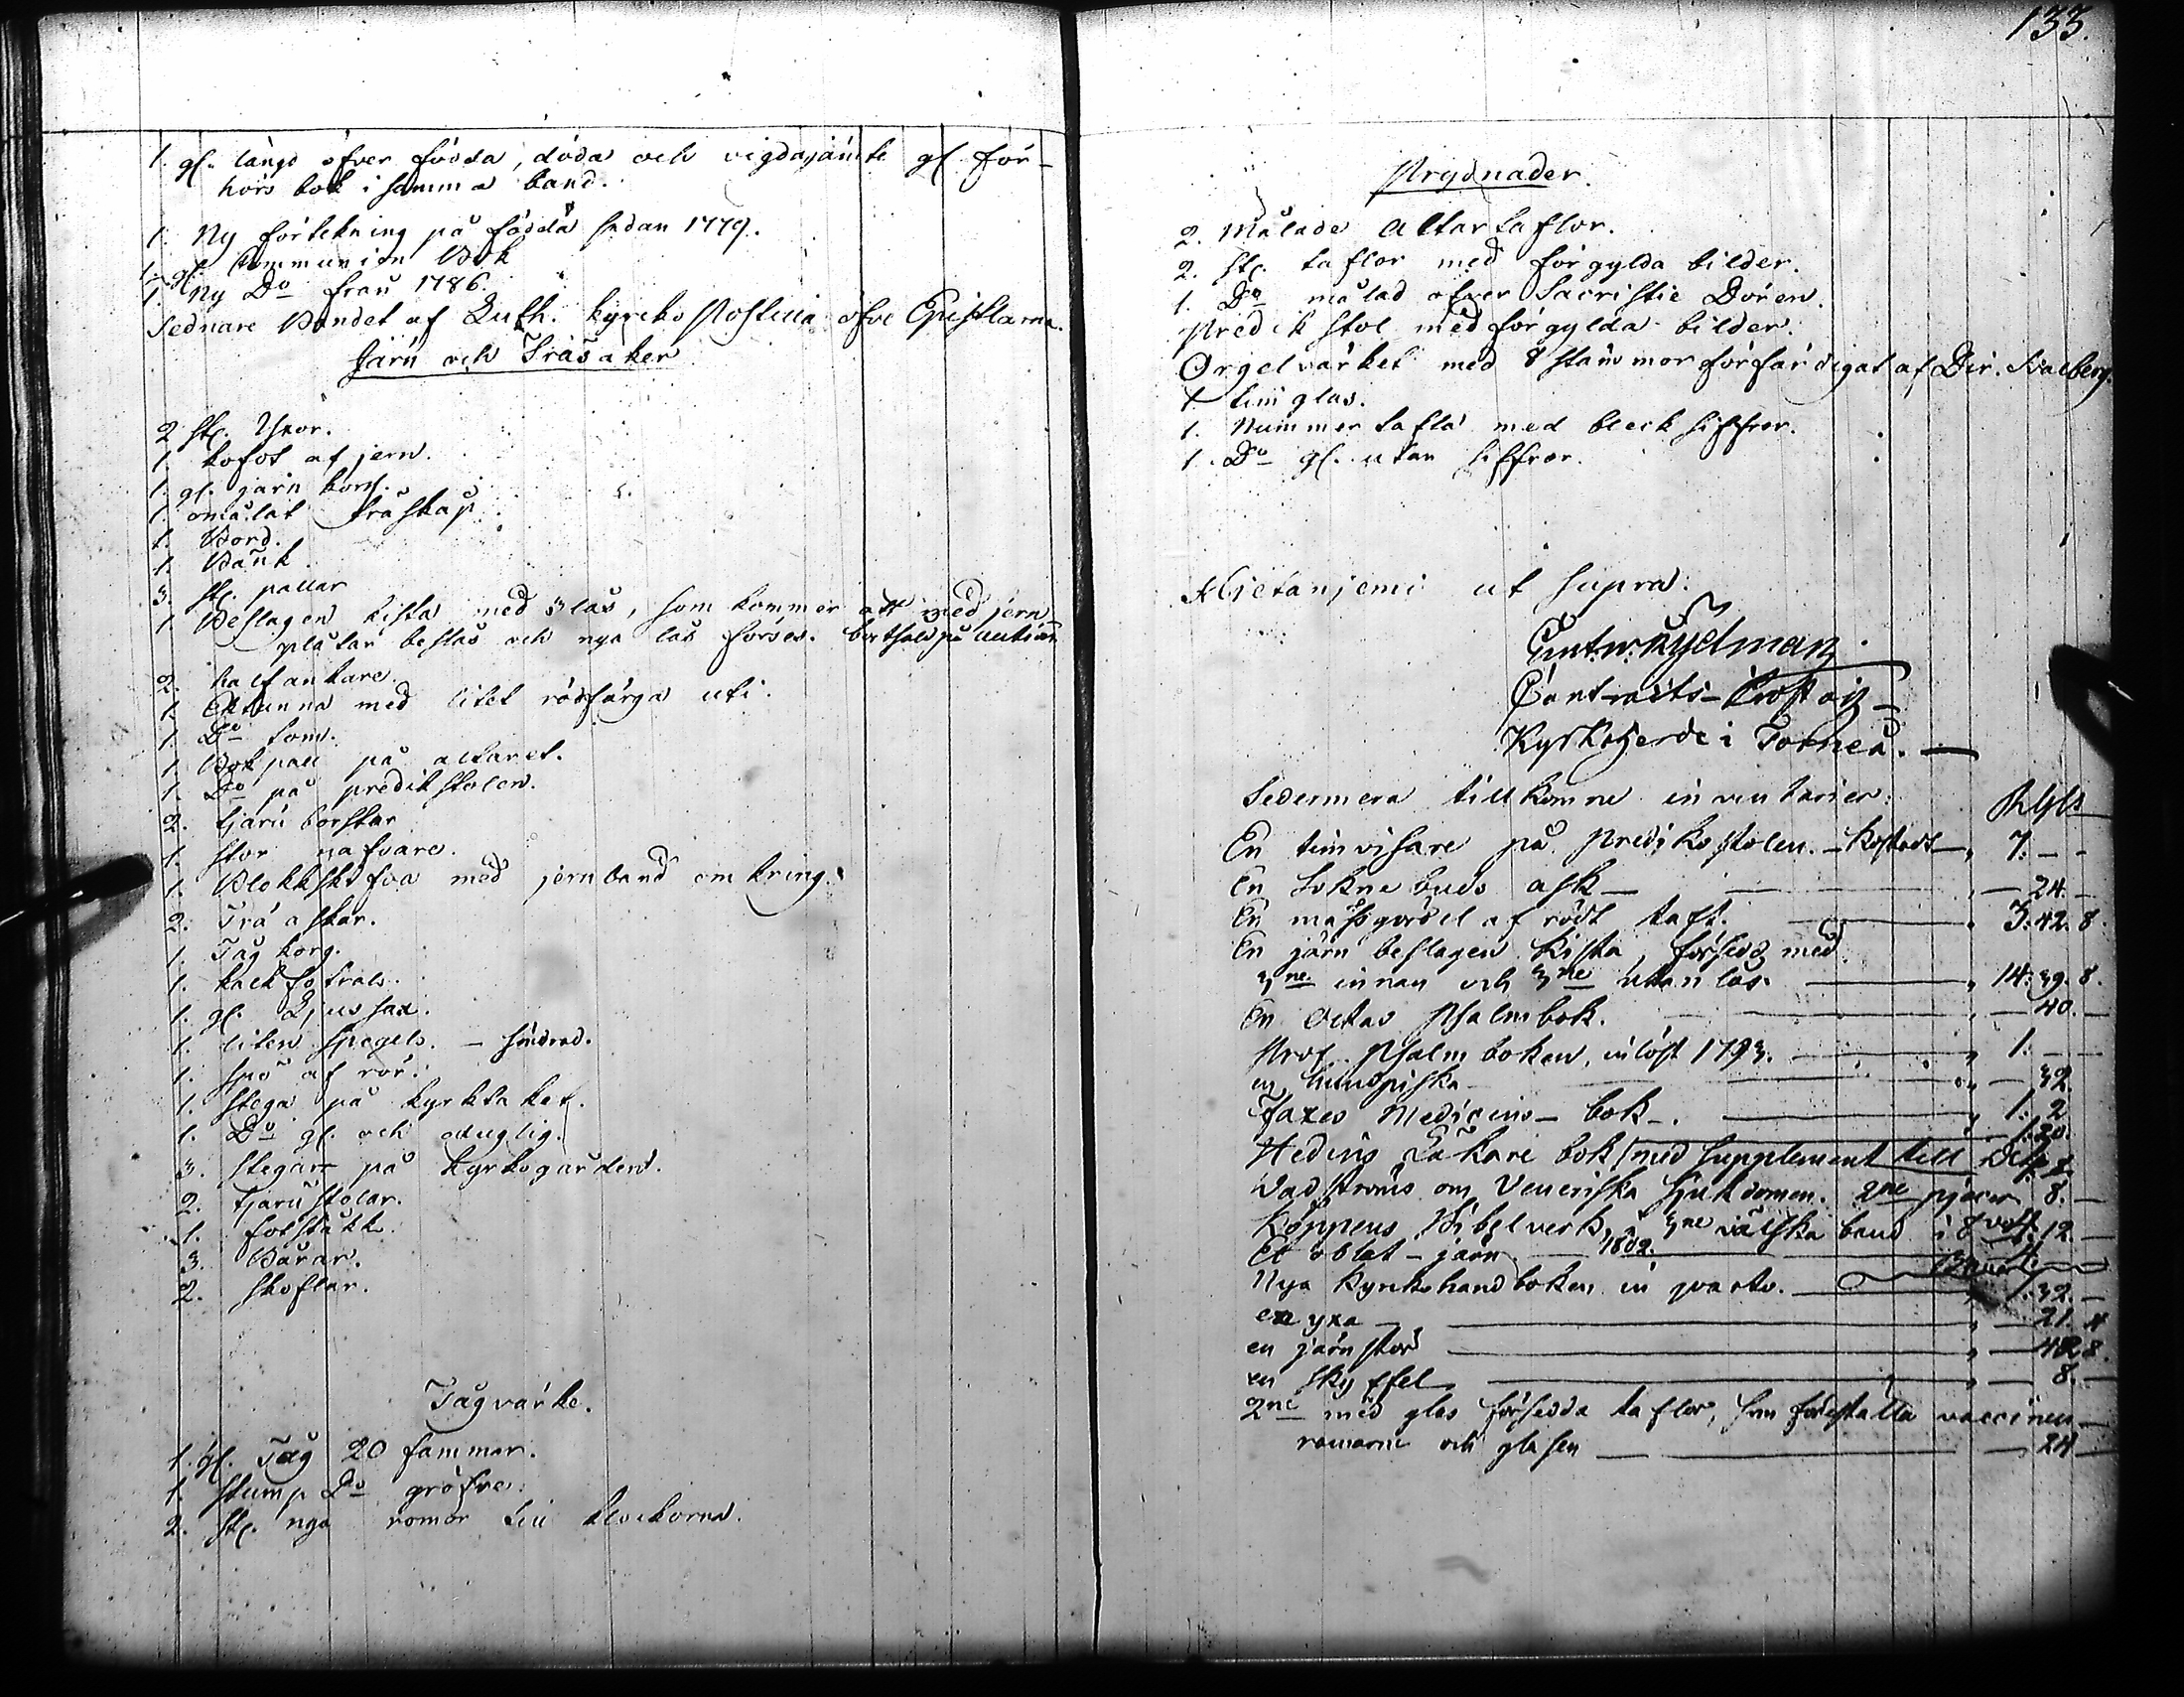 1. gl. längd öfver födda, döda och vigda, jämte gl. för-
hörs bok i samma band.
1. Ny förtekning på födda sedan 1779.
1. gl. Communion Bok
1. Ny Do från 1786.
Sednare Bandet af Luth. kyrko Postilla öfver Epistlarna.
Järn och Träsaker
2 st.
1. kofot af jern.
1. gl. järn
1. omålat träskåp.
1. Bord.
1. Bänk.
3. st. pallar
1. Beslagen kista med 3 lås, som kommer att med jern
plåtar beslås och nya lås förses. bortsåld på auction
2. halfankare.
1. tunna med litet rödfärga uti.
1. Do tom.
1. Bokpall på altaret.
1. Do på predikstolen.
2. tjäru borstar
1. stor nafvare.
1. Blokkskifva med jernband omkring.
2. Trä askar.
1. Tåg korg.
1. kalk fotral.
1. gl. Ljussax.
1. liten spegel. - söndrad.
1. spö af rör.
1. stega på kyrktaket.
1. Do gl. och oduglig.
3. stegar på kyrkogården.
2. tjäru stolar.
1. fotstäkk.
3. Bårar.
2. skoflar.
Tågvärke.
1. gl. Tåg 20 famnar.
1. stump Do gröfre.
2. st. nya romor till klockorna.
133.
Prydnader.
2. Målade Altartaflor.
2. st. taflor med förgylda bilder.
1. Do målad öfver Sacristie Dören.
Predikstol med förgylda bilder.
Orgelvärket med 8 stämmor förfärdigat af Dir. Svalberg.
1 timglas.
1. Nummer tafla med bleck siffror.
1. Do gl. utan siffror.
Hietaniemi ut supra.
Nydman
Contracts-Prost och
Kyrkoherde i Torneå.
Sedermera tillkomne inventarier: Rgls
En timvisare på Predikostolen. - kostade 7. - -
En Soknebuds ask - 24. -
En mässgördel af rödt taft. 3. 42. 8.
En järn beslagen Kista, försedd med
3ne innan och 3ne utan lås. 14. 39. 8.
En Octav Psalmbok. 40. -
Prof. Psalm boken, inlöst 1793. 1. - -
en hundpiska - 32
Faxes Medicins- bok -. 1. 2
1. 20.
Hedins Läkare bok med supplement till
Wadströms om Veneriska Sjukdomen. 2ne pjecer 8. -
Köppens Bibelverk, i 3ne välska band i 8 4. 12. -
Et oblat - järn 1802.
Nya Kyrkohandboken in qvarto. 1. 32. -
en yxa - 21. 4
en järnstör 42. 8.
en skyffel 8. -
2ne med glas försedda taflor, som föreställa vaccinen -
ramarne och glasen 24 -